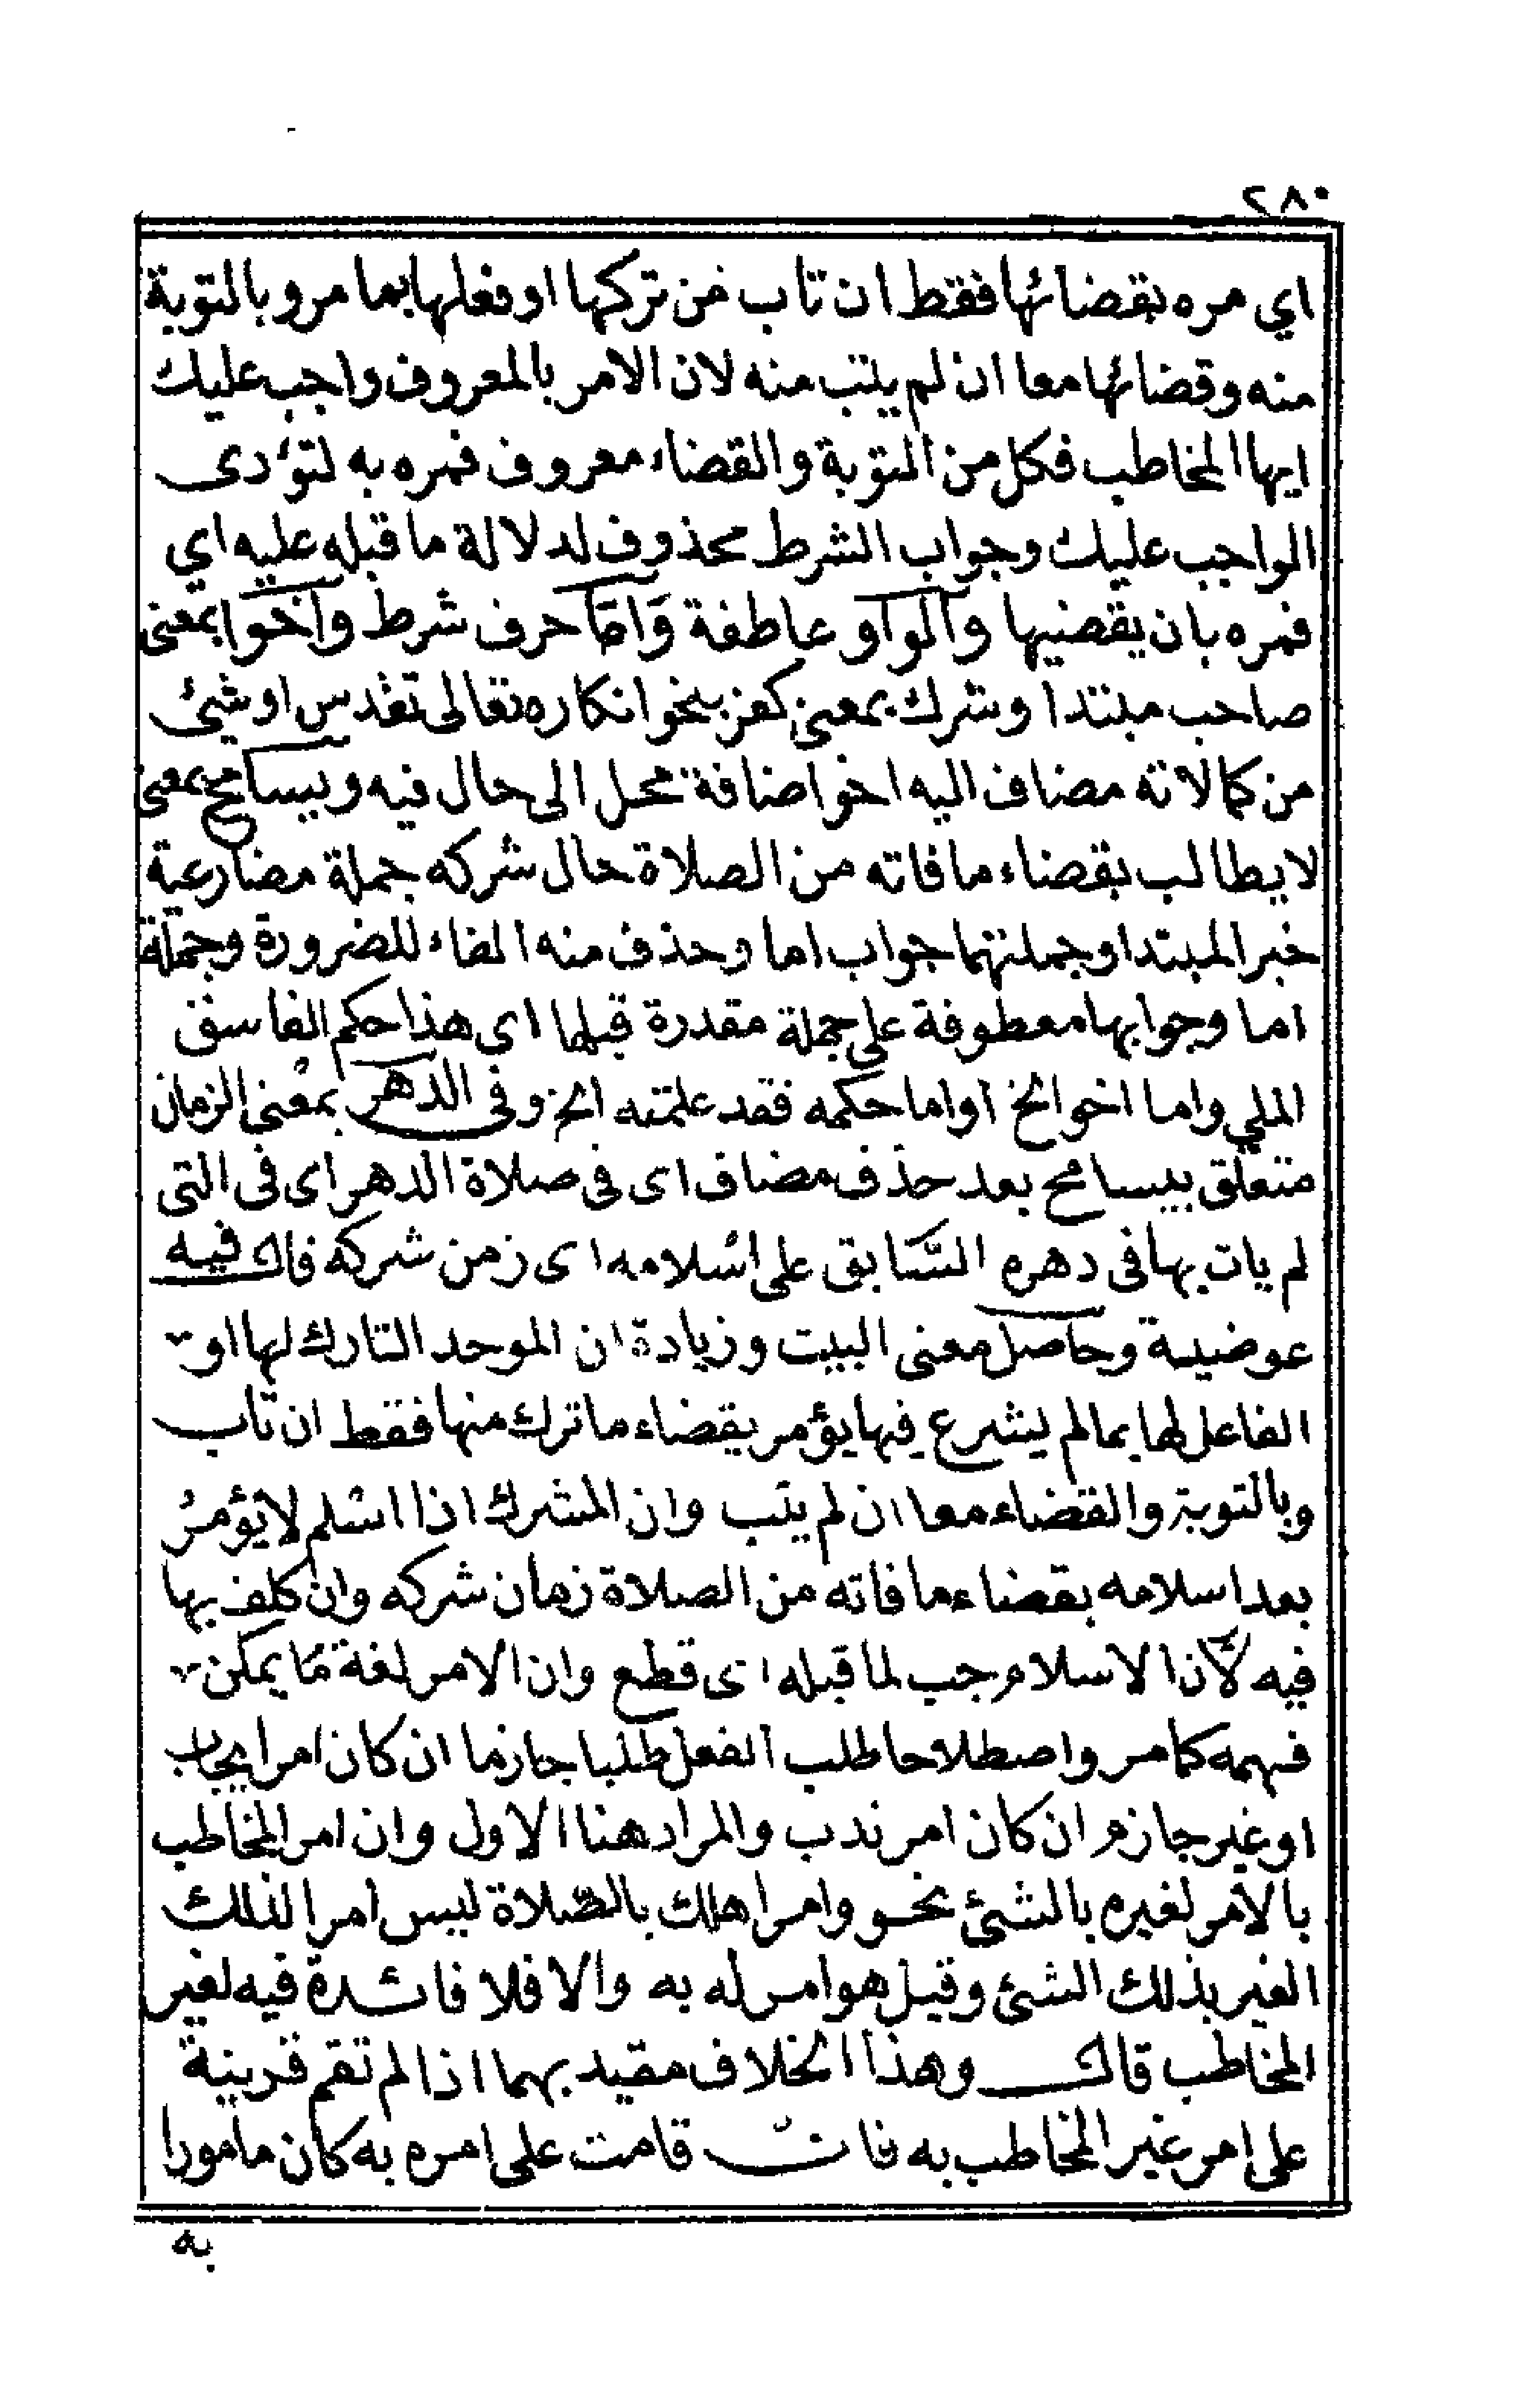 ٢٨٠
اي مره بقضائها فقط ان تاب من تركها او فعلها بما مر و بالتوبة
منه وقضائها معا ان لم يتب منه لان الامر بالمعروف واجب عليك
ايها المخاطب فكل من التوبة والقضاء معروف فمره به لتؤدى
الواجب عليك وجواب الشرط محذوف لدلالة ما قبله عليه اي
فمره بان يقضيها والواو عاطفة وَامَّا حرف شرط وأخو ابمعنى
صاحب مبتدا وشرك بمعنى كفر بنحو انكاره تعالى تقدس او شيئ
من كمالاته مضاف اليه اخو اضافة محل الى حال فيه ويسامح بمعنى
لا يطالب بقضاء ما فاته من الصلاة حال شركه جملة مضارعية
خبر المبتدا وجملتهما جواب اما وحذف منه الفاء للضرورة وجملة
اما وجوابها معطوفة على جملة مقدرة قبلها اى هذا حكم الفاسق
الملي واما اخو الخ او اما حكمه فقد علمته الخ وفى الدهر بمعنى الزمان
متعلق بيسامح بعد حذف مضاف اى فى صلاة الدهر اى فى التى
لم يات بها فى دهره السَّابق على اسلامه اى زمن شركه فال فيه
عوضية وحاصل معنى البيت وزيادة ان الموحد التارك لها او
الفاعل لها بما لم يشرع فيها يؤمر بقضاء ما ترك منها فقط ان تاب
وبالتوبة والقضاء معا ان لم يتب وان المشرك اذا اسلم لا يؤمرُ
بعد اسلامه بقضاء ما فاته من الصلاة زمان شركه وان كلف بها
فيه لأن الاسلام جب لما قبله اى قطع وان الامر لغة مَا يمكن
فهمه كما مر واصطلاحا طلب الفعل طلبا جازما ان كان امر ايجاب
او غير جازم ان كان امر ندب والمراد هنا الاول وان امر المخاطب
بالامر لغيره بالشئ نحو وامر اهلك بالصَّلاة ليس امرا لذلك
الغير بذلك الشئ وقيل هو امر له به والا فلا فائدة فيه لغير
المخاطب قال وهذا الخلاف مقيد بهما اذا لم تقم قرينة
على امر غير المخاطب به فان قامت على امره به كان مامورا
به